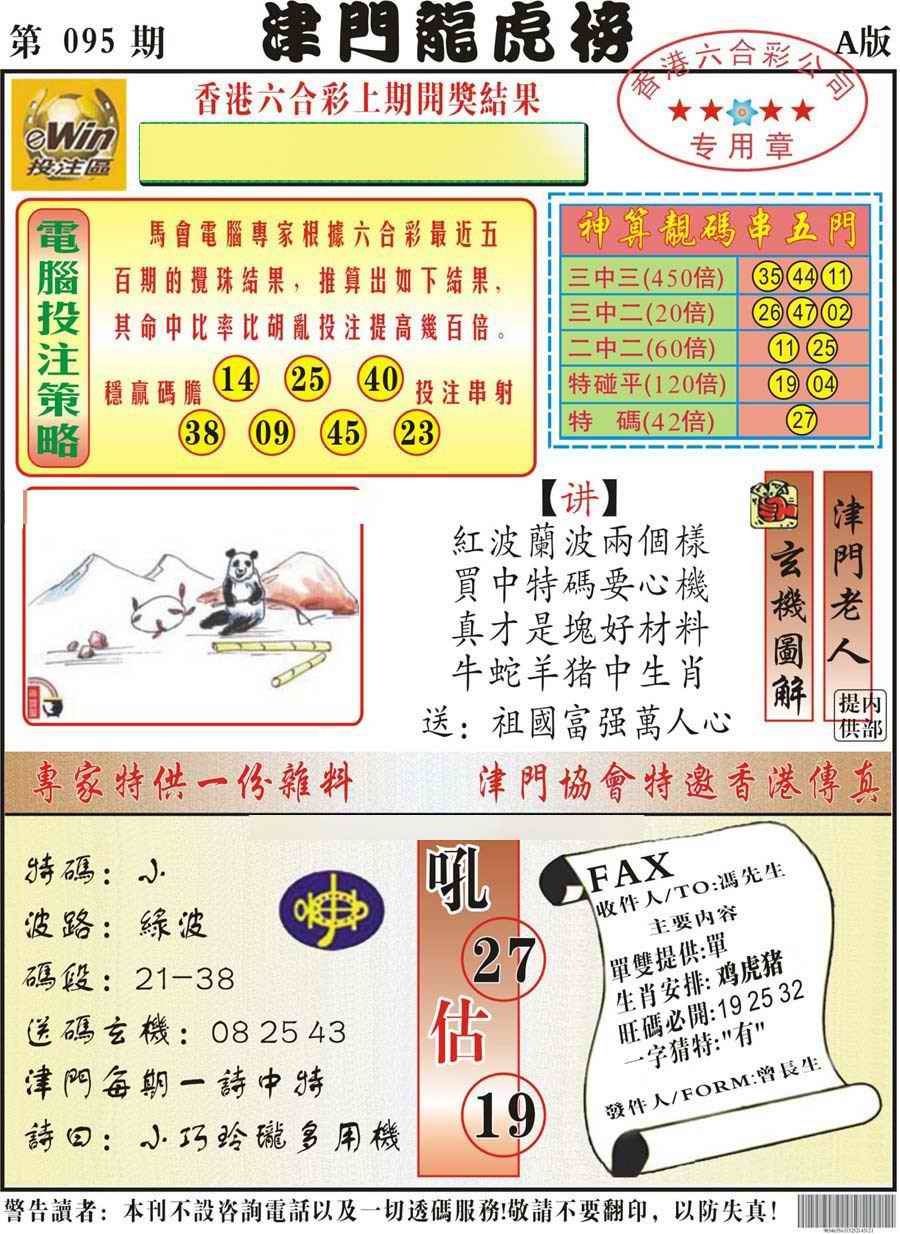 第 095 期
津門龍虎榜
A版
香港六合彩公司
专用章
eWin
投注區
香港六合彩上期開獎結果
電腦投注策略
馬會電腦專家根據六合彩最近五
百期的攪珠結果，推算出如下結果，
其命中比率比胡亂投注提高幾百倍。
穩贏碼膽 14 25 40 投注串射
38 09 45 23
神算靚碼串五門
三中三(450倍) 35 44 11
三中二(20倍) 26 47 02
二中二(60倍) 11 25
特碰平(120倍) 19 04
特 碼(42倍) 27
【讲】
紅波蘭波兩個樣
買中特碼要心機
真才是塊好材料
牛蛇羊猪中生肖
送：祖國富强萬人心
玄機圖解
津門老人
内部提供
專家特供一份雜料
津門協會特邀香港傳真
特碼：小
波路：綠波
碼段：21—38
送碼玄機：08 25 43
津門每期一詩中特
詩曰：小巧玲瓏多用機
吼
27
估
19
FAX
收件人/TO:馮先生
主要内容
單雙提供:單
生肖安排: 鸡虎猪
旺碼必開:19 25 32
一字猜特:"有"
發件人/FORM:曾長生
警告讀者：本刊不設咨詢電話以及一切透碼服務!敬請不要翻印，以防失真！